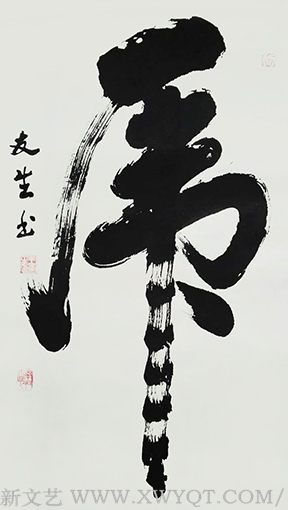 虎
友生书
新文艺 WWW.XWYQT.COM/